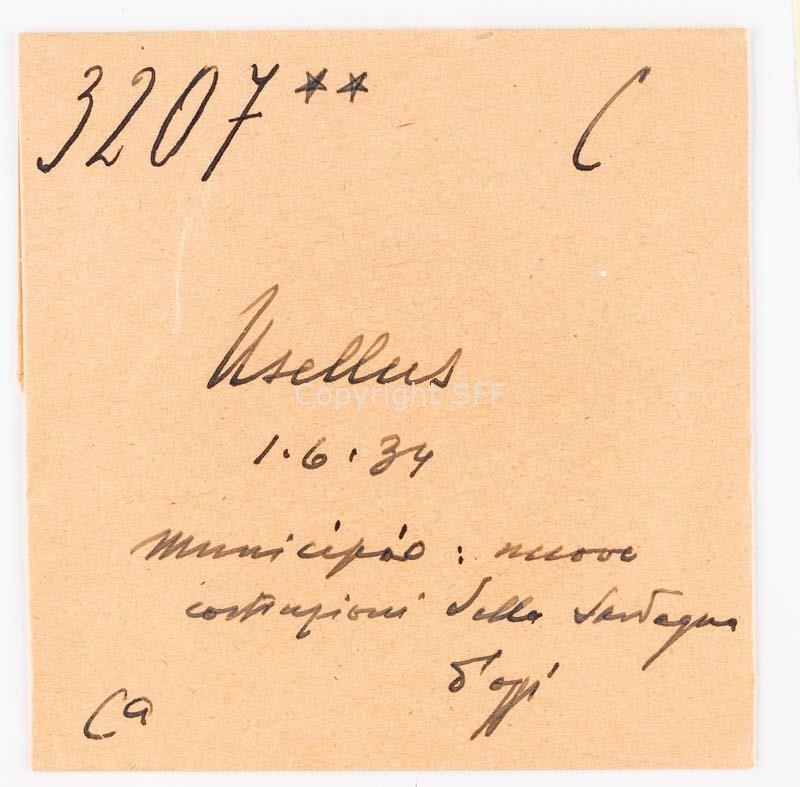 3207** C
Usellus
Copyright SFF
1.6.34
Municipio: nuove
costruzioni della Sardegna
d'oggi
Ca